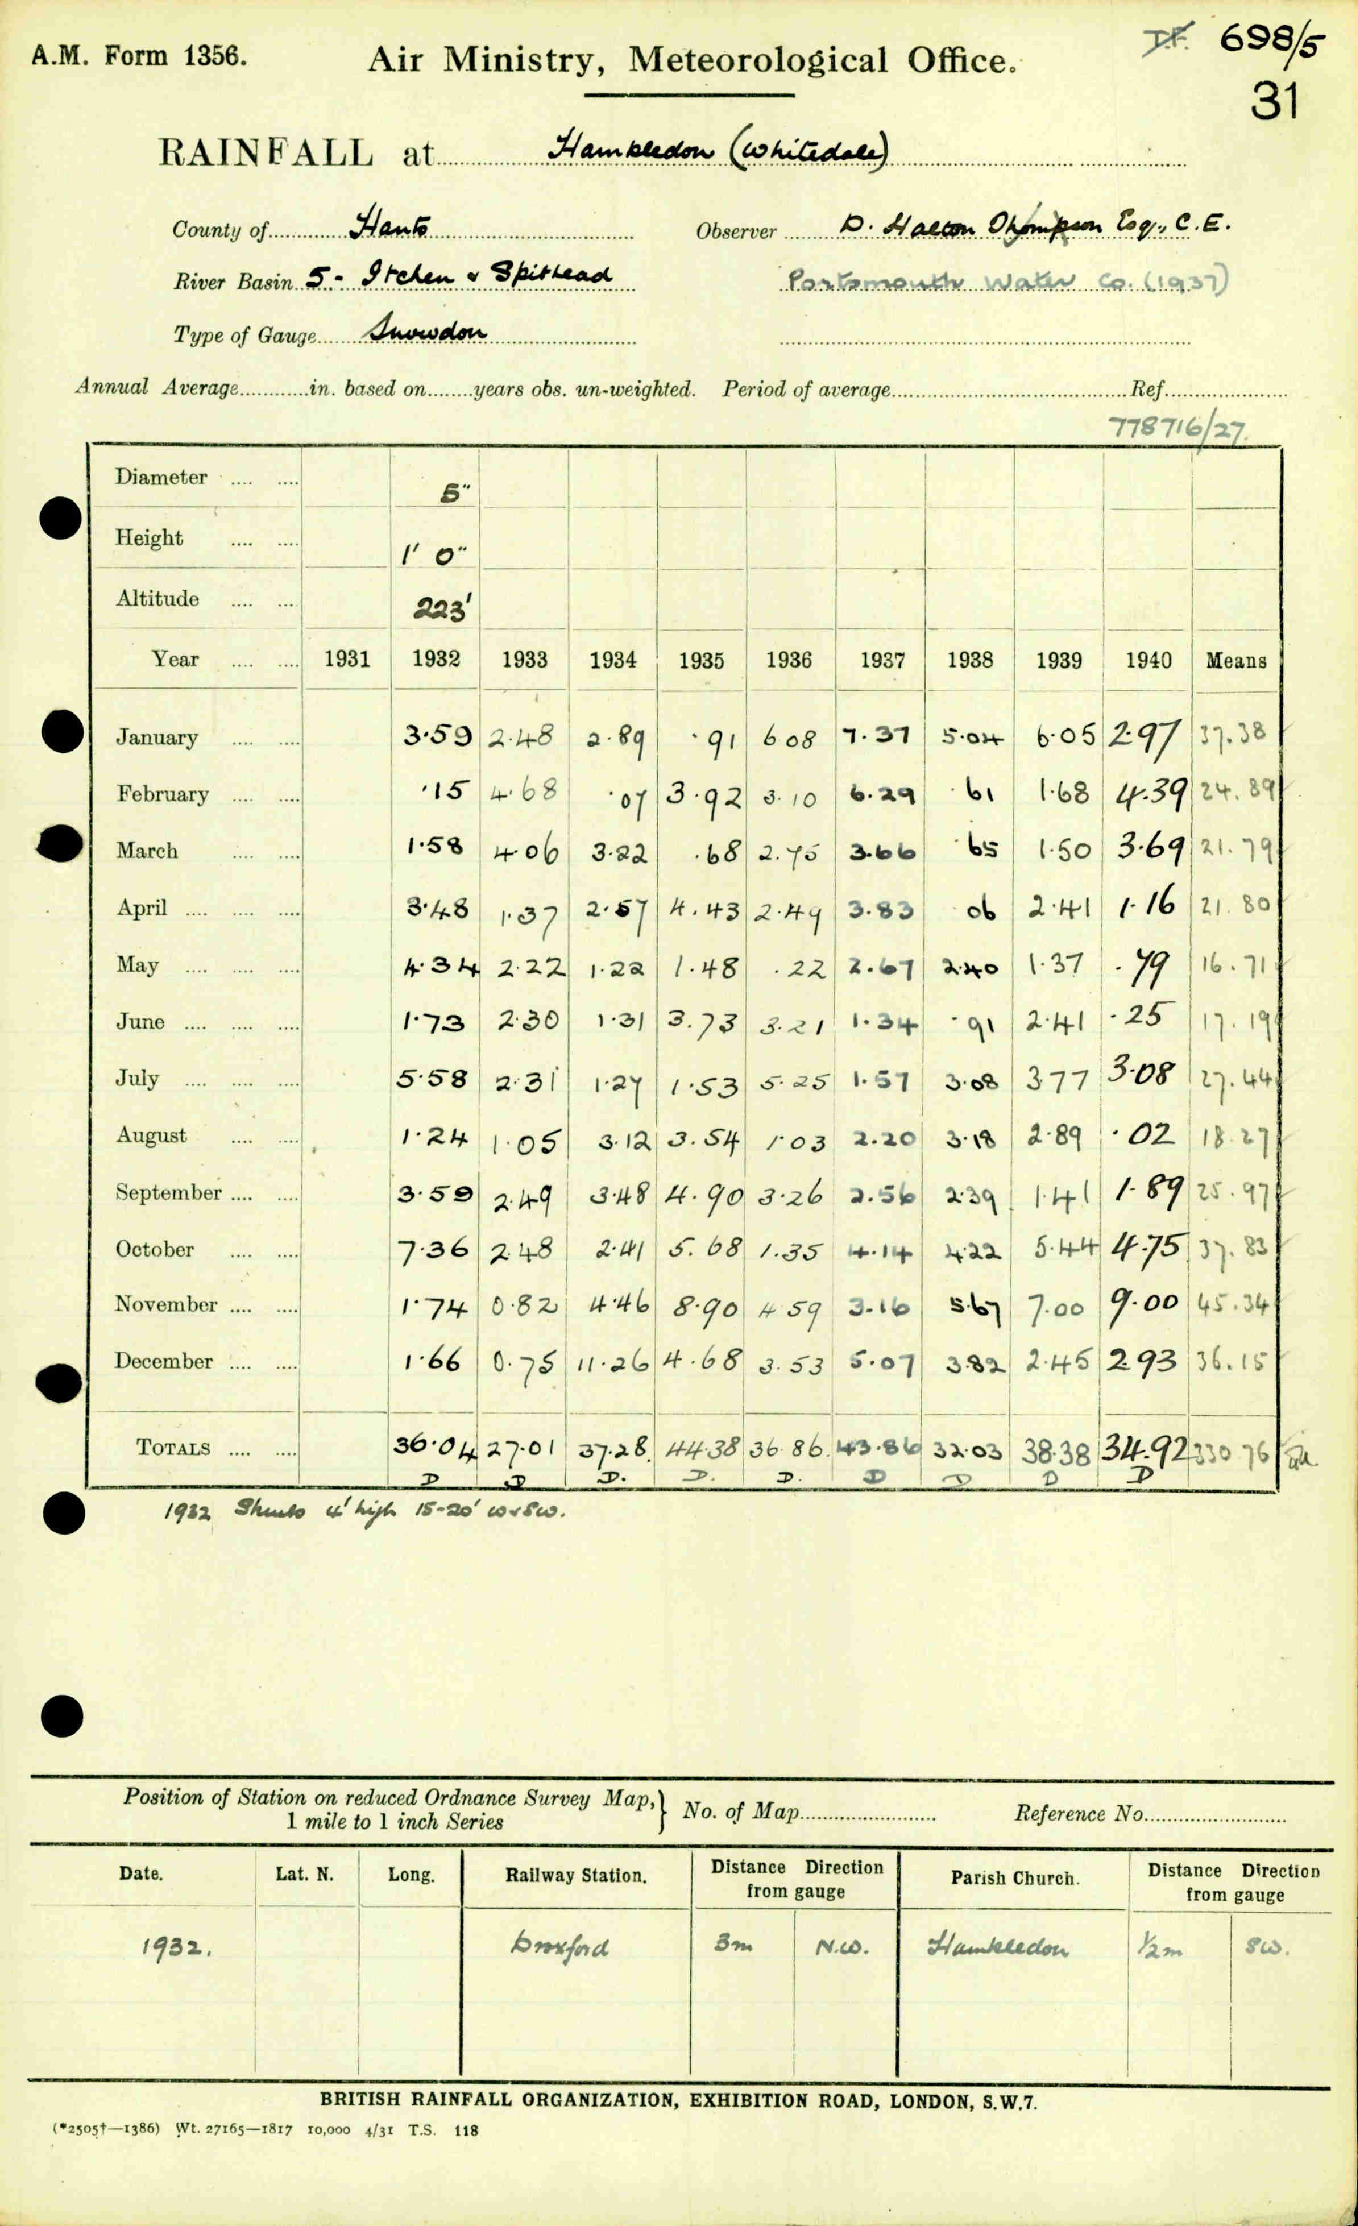 A.M. Form 1356.
Air Ministry, Meteorological Office.
D.F. 698/5
31
RAINFALL at Hambledon (Whitedale)
County of Hants
Observer D. Halton Thompson Esq., C.E.
River Basin 5 - Itchen & Spithead
Portsmouth Water Co. (1937)
Type of Gauge Snowdon
Annual Average in. based on years obs. un-weighted. Period of average Ref.
778716/27
Diameter 5"
Height 1' 0"
Altitude 223'
Year 1931 1932 1933 1934 1935 1936 1937 1938 1939 1940 Means
January 3·59 2·48 2·89 ·91 6 08 7·37 5·04 6·05 2·97 37.38
February ·15 4·68 ·07 3·92 3·10 6·29 61 1·68 4·39 24.89
March 1·58 4 06 3·22 ·68 2·75 3·66 65 1·50 3·69 21.79
April 3·48 1·37 2·57 4·43 2·49 3·83 06 2·41 1·16 21.80
May 4·34 2·22 1·22 1·48 ·22 2·67 2·40 1·37 ·79 16.71
June 1·73 2·30 1·31 3·73 3·21 1·34 ·91 2·41 ·25 17.19
July 5·58 2·31 1·27 1·53 5·25 1·57 3·08 3 77 3·08 27.44
August 1·24 1·05 3·12 3·54 1·03 2·20 3·18 2·89 ·02 18.27
September 3·59 2·49 3·48 4·90 3·26 2·56 2·39 1·41 1·89 25.97
October 7·36 2·48 2·41 5·68 1·35 4·14 4·22 5·44 4·75 37.83
November 1·74 0·82 4·46 8·90 4 59 3·16 5·67 7·00 9·00 45.34
December 1·66 0·75 11·26 4·68 3·53 5·07 3·82 2·45 2·93 36.15
TOTALS 36·04 27·01 37·28 44·38 36 86 43·86 32·03 38·38 34·92 330 76
D D D. D. D. D D D D
1932 Shrubs 4' high 15-20' W & SW.
Position of Station on reduced Ordnance Survey Map, 1 mile to 1 inch Series } No. of Map Reference No.
Date. Lat. N. Long. Railway Station. Distance Direction from gauge Parish Church. Distance Direction from gauge
1932. Droxford 3m N.W. Hambledon ½m SW.
BRITISH RAINFALL ORGANIZATION, EXHIBITION ROAD, LONDON, S.W.7.
(*2505†—1386) Wt. 27165—1817 10,000 4/31 T.S. 118